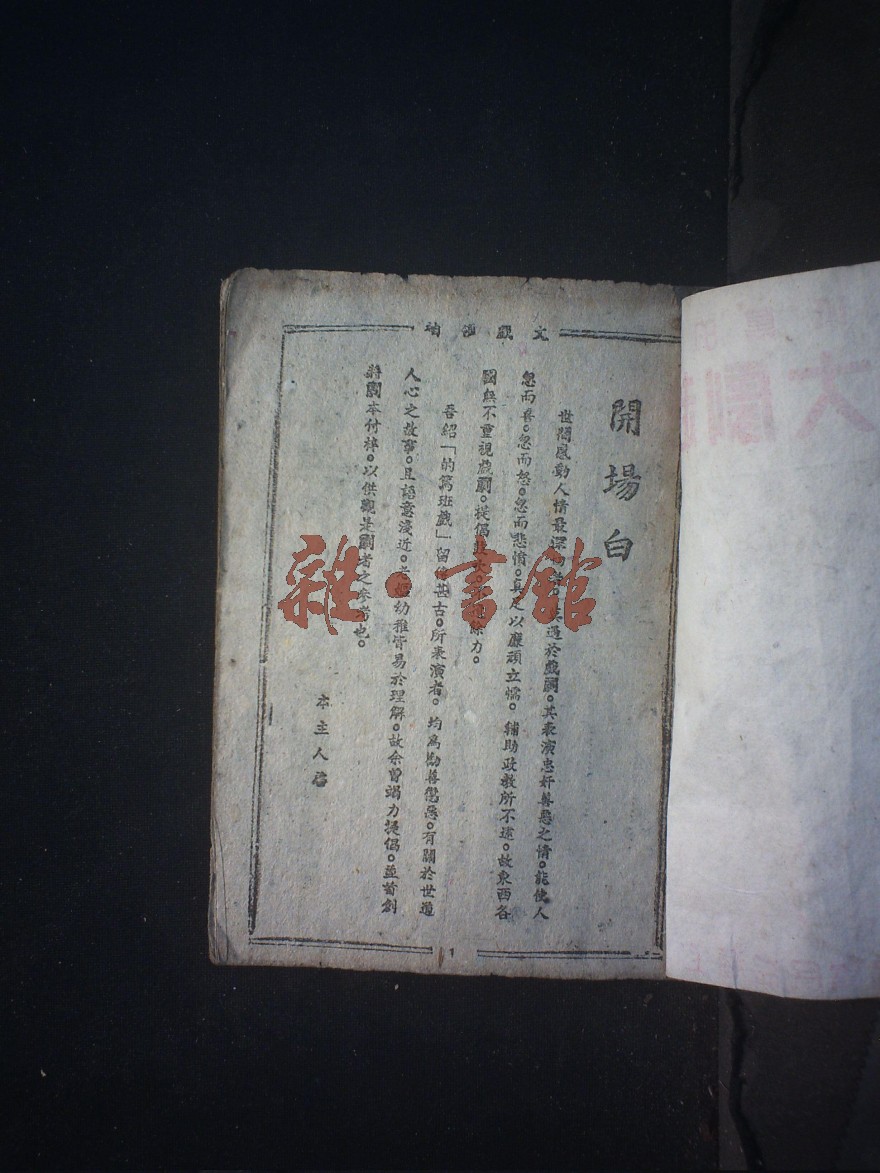 文戲
開場白
世間感動人情最深。過於戲劇。其表演忠奸善惡之情。能使人
忽而喜。忽而怒。忽而悲情。真足以廉頑立懦。輔助政教所不逮。故東西各
國無不重視戲劇。提倡餘力。
吾紹「的篤班戲」留甚古。所表演者。均為勸善懲惡。有關於世道
人心之故事。且語意淺近。老幼雅皆易於理解。故余曾竭力提倡。並首創
將劇本付梓。以供觀是劇者之參考也。
本主人啓
1
雜·書館